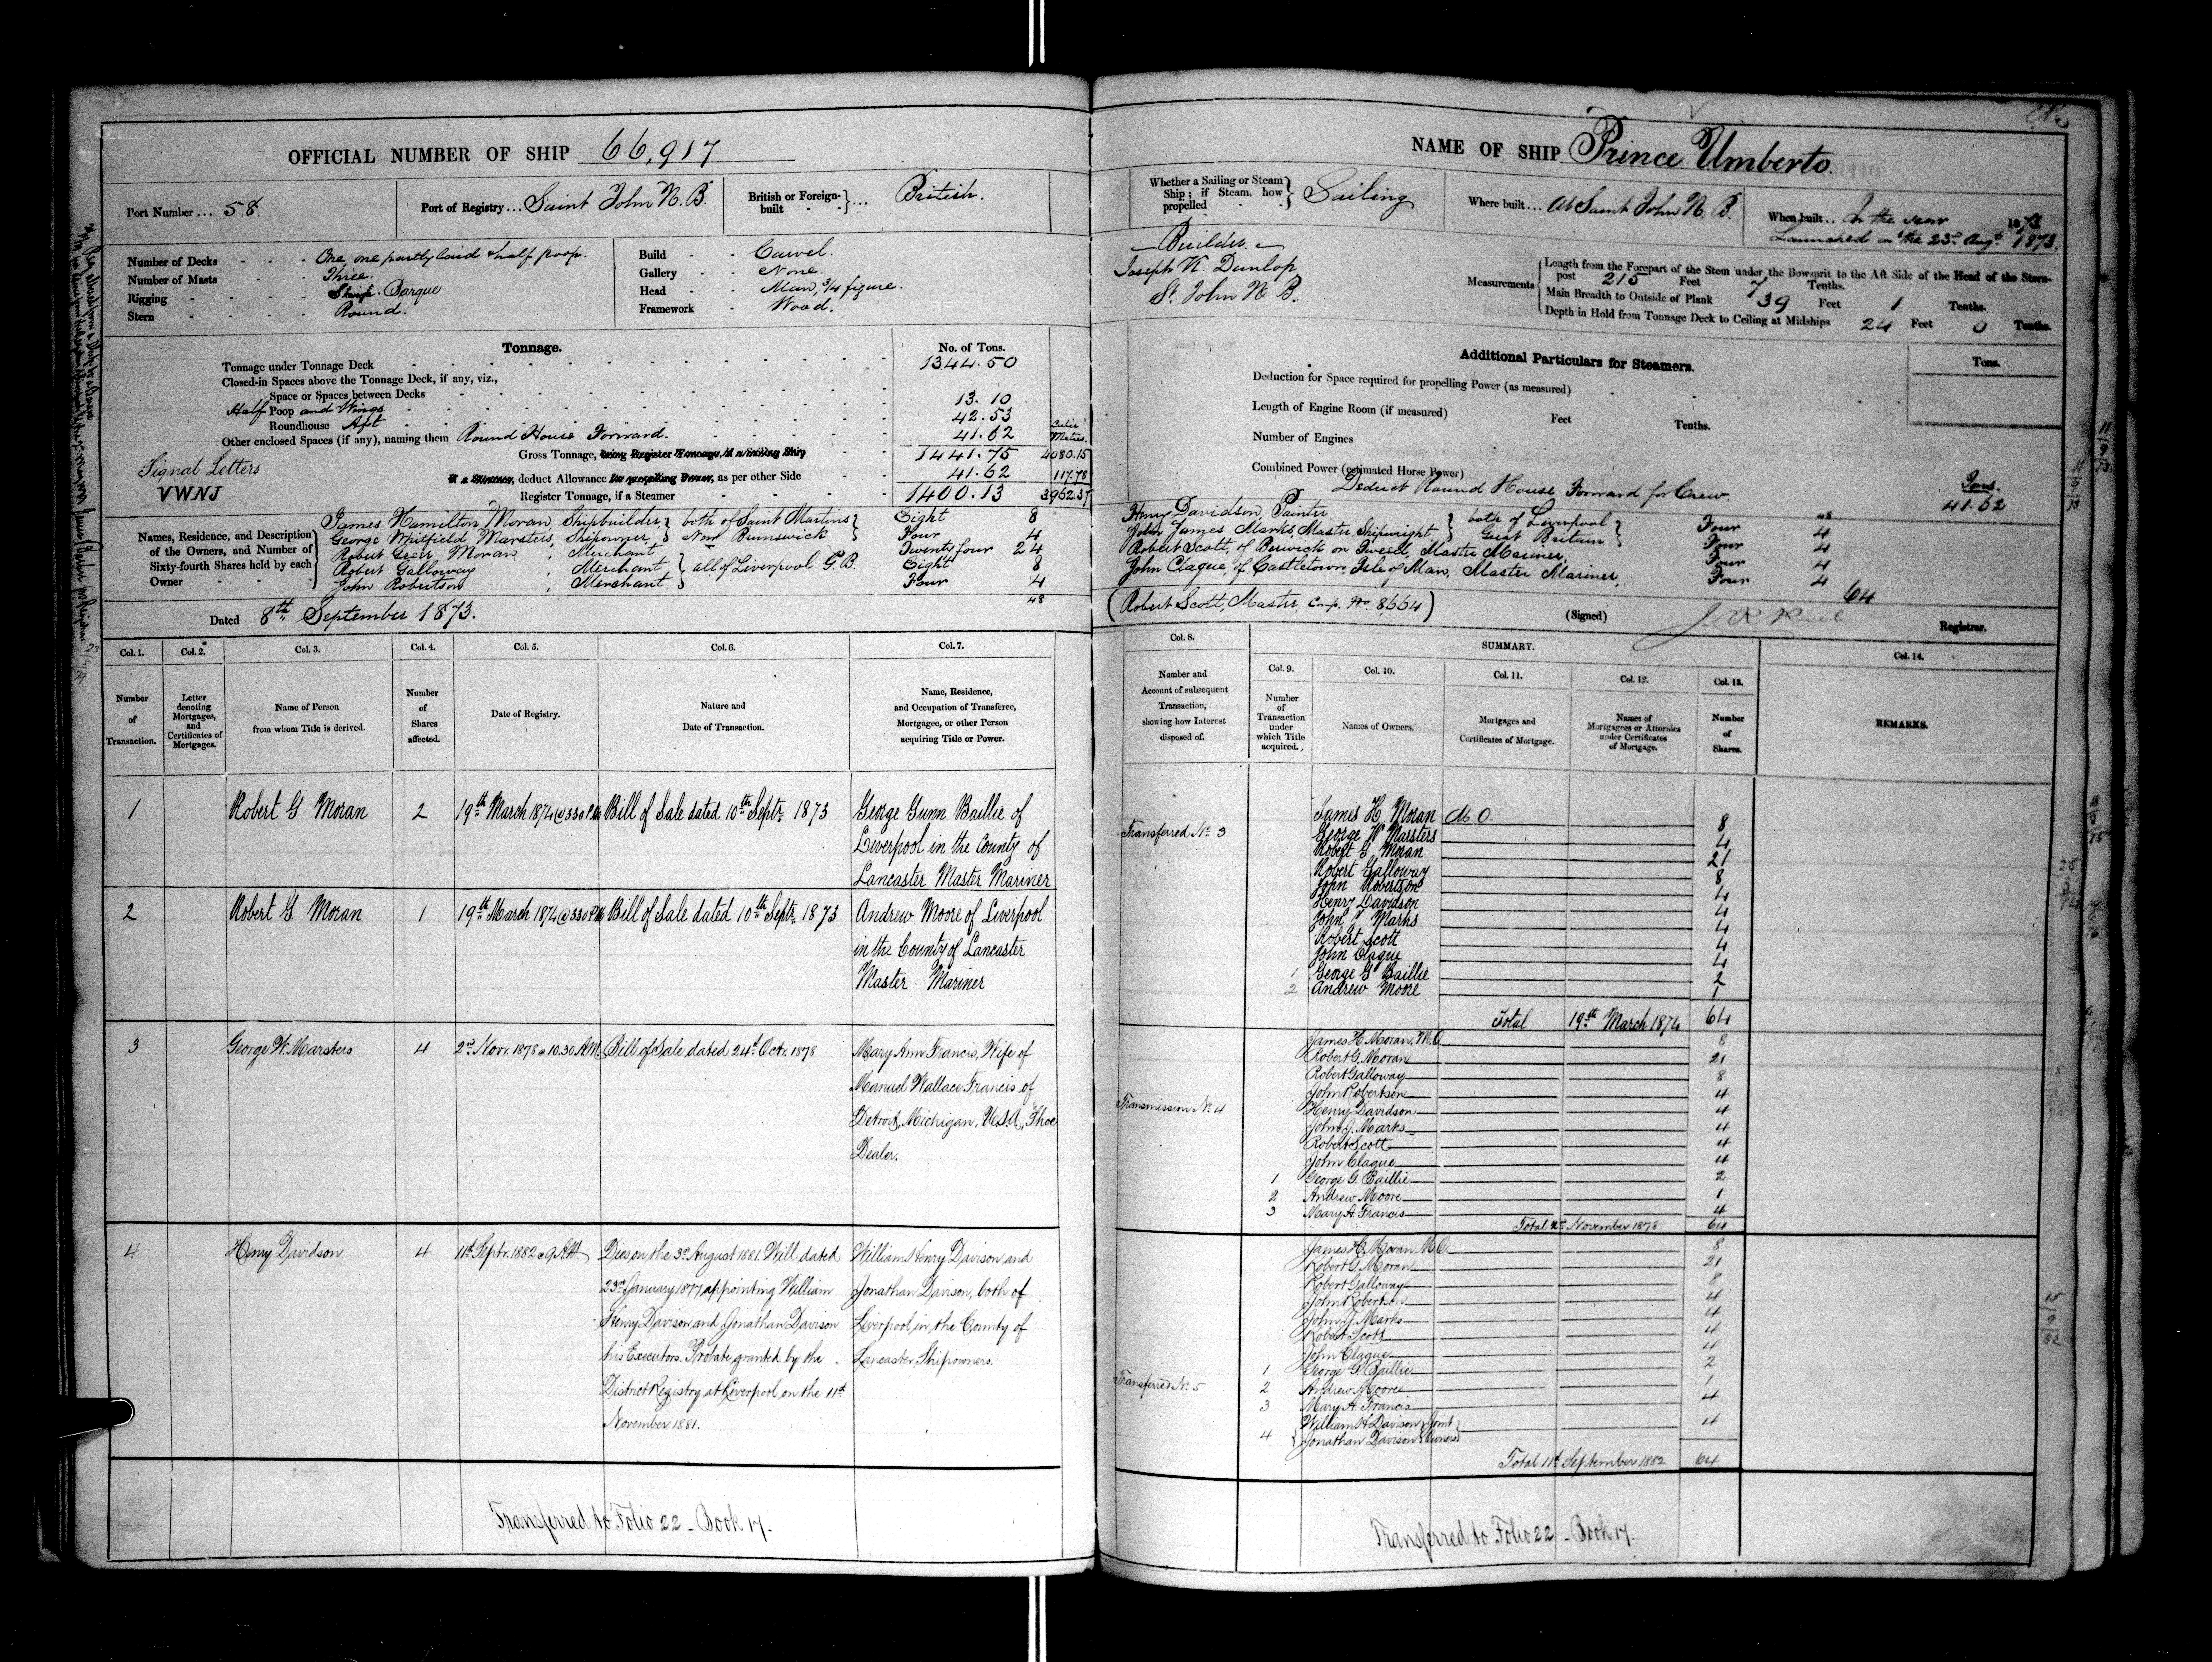 OFFICIAL NUMBER OF SHIP 66,917
Port Number ... 58.
Port of Registry ... Saint John N.B.
British or Foreign-built ... British.
Number of Decks One, one partly laid & half poop.
Number of Masts Three.
Rigging Barque
Stern Round.
Build Carvel.
Gallery None.
Head Man, 3/4 figure.
Framework Wood.
Tonnage.
No. of Tons.
Tonnage under Tonnage Deck 1344.50
Closed-in Spaces above the Tonnage Deck, if any, viz.,
Space or Spaces between Decks
Half Poop and Wings 13.10
Roundhouse Aft 42.53
Other enclosed Spaces (if any), naming them Round House Forward. 41.62
Cubic Metres.
Gross Tonnage, being Register Tonnage, if a Sailing Ship 1441.75 4080.15
If a Steamer, deduct Allowance for propelling Power, as per other Side 41.62 117.78
Register Tonnage, if a Steamer 1400.13 3962.37
Signal Letters
VWNJ
Names, Residence, and Description of the Owners, and Number of Sixty-fourth Shares held by each Owner
James Hamilton Moran, Shipbuilder, } both of Saint Martins } Eight 8
George Whitfield Marsters, Shipowner, } New Brunswick } Four 4
Robert Greer Moran Merchant Twenty four 24
Robert Galloway , Merchant } all of Liverpool G.B. Eight 8
John Robertson , Merchant. Four 4
48
Dated 8th September 1873.
Col. 1. Col. 2. Col. 3. Col. 4. Col. 5. Col. 6. Col. 7.
Number of Transaction.
Letter denoting Mortgages, and Certificates of Mortgages.
Name of Person from whom Title is derived.
Number of Shares affected.
Date of Registry.
Nature and Date of Transaction.
Name, Residence, and Occupation of Transferee, Mortgagee, or other Person acquiring Title or Power.
1 Robert G Moran 2 19th March 1874 @ 3 30 P.M. Bill of Sale dated 10th Septr 1873 George Gunn Baillie of
Liverpool in the County of
Lancaster Master Mariner
2 Robert G Moran 1 19th March 1874 @ 3 30 P.M. Bill of Sale dated 10th Septr 1873 Andrew Moore of Liverpool
in the County of Lancaster
Master Mariner
3 George W. Marsters 4 2nd Novr. 1878 @ 10.30 A.M. Bill of Sale dated 24th Octr. 1878 Mary Ann Francis, Wife of
Manuel Wallace Francis of
Detroit, Michigan, U.S.A., Shoe
Dealer.
4 Henry Davidson 4 11th Septr. 1882 @ 9 A.M. Dies on the 3rd August 1881. Will dated
23rd January 1877, appointing William
Henry Davison and Jonathan Davison
his Executors. Probate granted by the
District Registry at Liverpool on the 11th
November 1881.
William Henry Davison and
Jonathan Davison, both of
Liverpool in the County of
Lancaster, Shipowners.
Transferred to Folio 22 - Book 17.
NAME OF SHIP Prince Umberto.
Whether a Sailing or Steam Ship; if Steam, how propelled } Sailing
Where built ... At Saint John N.B.
When built ... In the year 1873
Launched on the 23rd Augt. 1873.
Builder.
Joseph K. Dunlop
St. John N.B.
Measurements
Length from the Forepart of the Stem under the Bowsprit to the Aft Side of the Head of the Stern-post 215 Feet 7 Tenths.
Main Breadth to Outside of Plank 39 Feet 1 Tenths.
Depth in Hold from Tonnage Deck to Ceiling at Midships 24 Feet 0 Tenths.
Additional Particulars for Steamers.
Tons.
Deduction for Space required for propelling Power (as measured)
Length of Engine Room (if measured) Feet Tenths.
Number of Engines
Combined Power (estimated Horse Power)
Deduct Round House Forward for Crew. Tons. 41.62
48
Henry Davidson, Painter } both of Liverpool } Four 4
John James Marks, Master Shipwright } Great Britain } Four 4
Robert Scott, of Berwick on Tweed, Master Mariner, Four 4
John Clague, of Castletown, Isle of Man, Master Mariner, Four 4
64
(Robert Scott, Master, Comp. No. 8,664)
(Signed) Registrar.
Col. 8. SUMMARY. Col. 14.
Col. 9. Col. 10. Col. 11. Col. 12. Col. 13.
Number and Account of subsequent Transaction, showing how Interest disposed of.
Number of Transaction under which Title acquired.
Names of Owners.
Mortgages and Certificates of Mortgage.
Names of Mortgagees or Attornies under Certificates of Mortgage.
Number of Shares.
REMARKS.
James H. Moran M O 8
Transferred No. 3 George W Marsters 4
Robert G Moran 21
Robert Galloway 8
John Robertson 4
Henry Davidson 4
John J Marks 4
Robert Scott 4
John Clague 4
1 George G Baillie 2
2 Andrew Moore 1
Total 19th March 1874 64
James H. Moran, M.O. 8
Robert G. Moran 21
Robert Galloway 8
John Robertson 4
Transmission No. 4 Henry Davidson 4
John J. Marks 4
Robert Scott 4
John Clague 4
1 George G. Baillie 2
2 Andrew Moore 1
3 Mary A. Francis 4
Total 2nd November 1878 64
James H. Moran M.O. 8
Robert G. Moran 21
Robert Galloway 8
John Robertson 4
John J. Marks 4
Robert Scott 4
John Clague 4
1 George G. Baillie 2
Transferred No. 5 2 Andrew Moore 1
3 Mary A. Francis 4
4 { William H Davison } Joint 4
Jonathan Davison } Owners
Total 11th September 1882 64
Transferred to Folio 22 - Book 17.